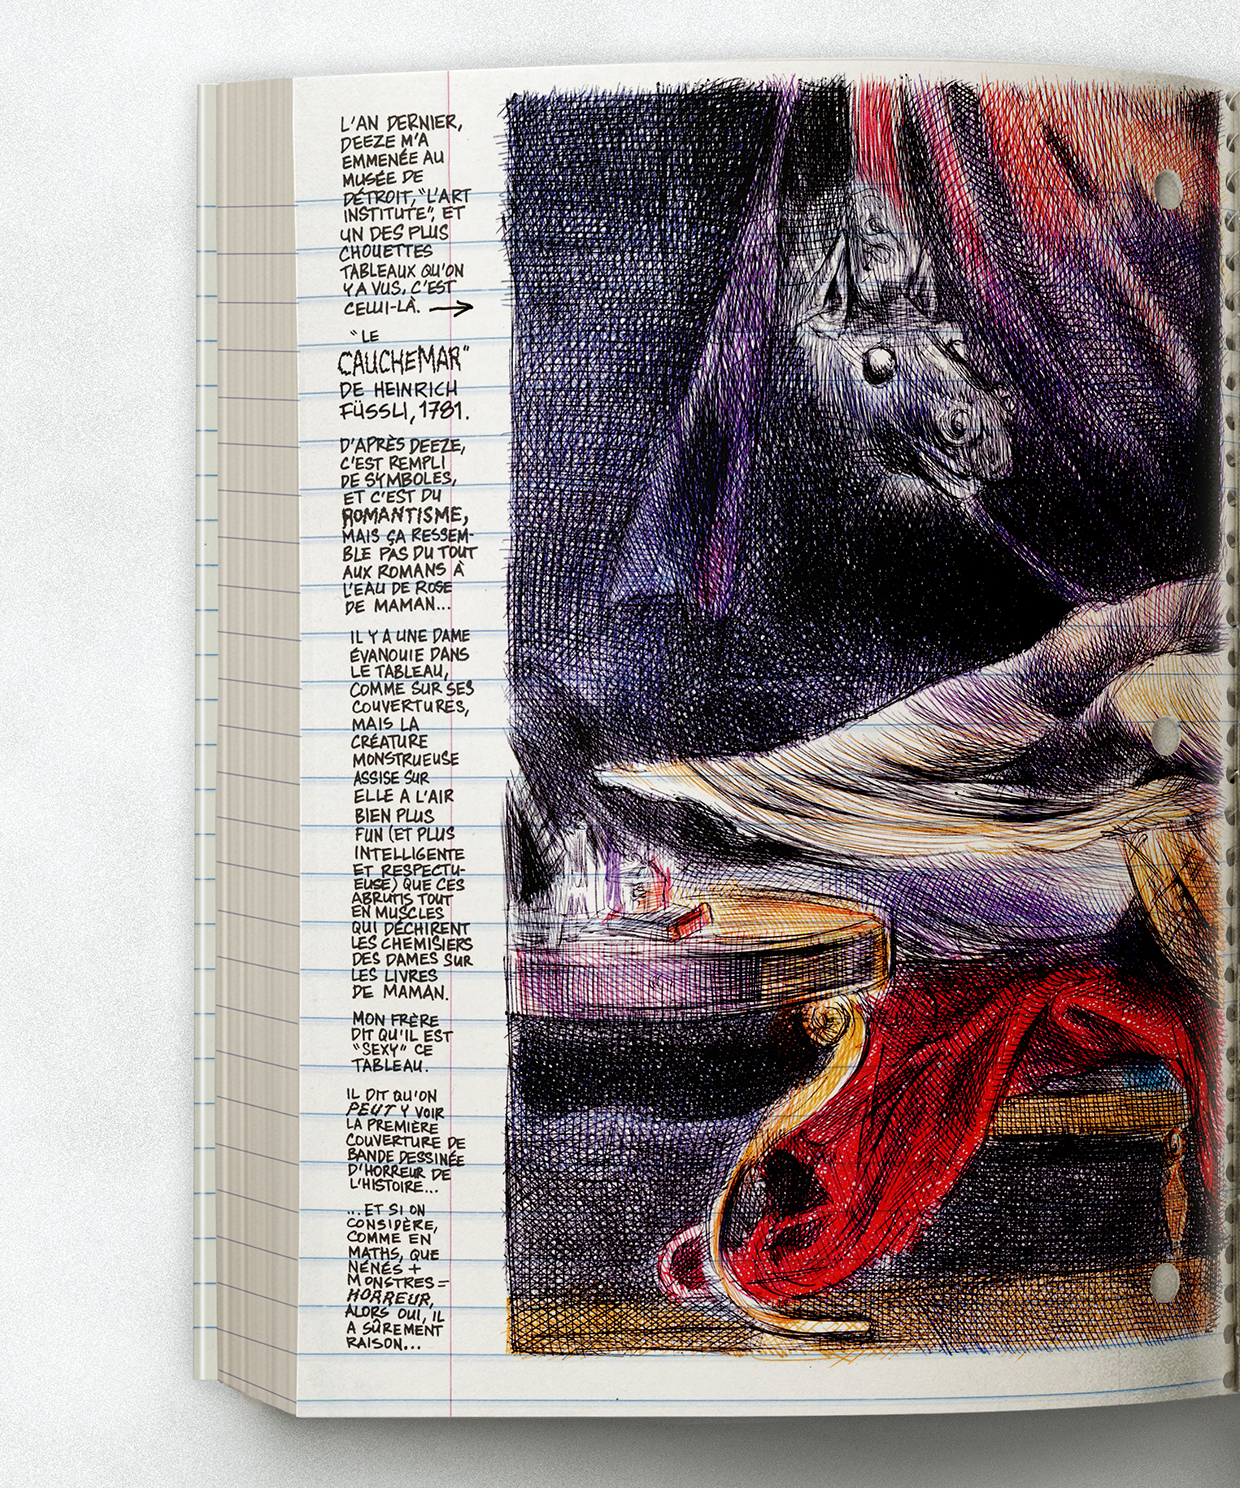 L'AN DERNIER,
DEEZE M'A
EMMENÉE AU
MUSÉE DE
DÉTROIT, "L'ART
INSTITUTE", ET
UN DES PLUS
CHOUETTES
TABLEAUX QU'ON
Y A VUS, C'EST
CELUI-LÀ. →
"LE
CAUCHEMAR"
DE HEINRICH
FÜSSLI, 1781.
D'APRÈS DEEZE,
C'EST REMPLI
DE SYMBOLES,
ET C'EST DU
ROMANTISME,
MAIS ÇA RESSEM-
BLE PAS DU TOUT
AUX ROMANS À
L'EAU DE ROSE
DE MAMAN...
IL Y A UNE DAME
ÉVANOUIE DANS
LE TABLEAU,
COMME SUR SES
COUVERTURES,
MAIS LA
CRÉATURE
MONSTRUEUSE
ASSISE SUR
ELLE A L'AIR
BIEN PLUS
FUN (ET PLUS
INTELLIGENTE
ET RESPECTU-
EUSE) QUE CES
ABRUTIS TOUT
EN MUSCLES
QUI DÉCHIRENT
LES CHEMISIERS
DES DAMES SUR
LES LIVRES
DE MAMAN.
MON FRÈRE
DIT QU'IL EST
"SEXY" CE
TABLEAU.
IL DIT QU'ON
PEUT Y VOIR
LA PREMIÈRE
COUVERTURE DE
BANDE DESSINÉE
D'HORREUR DE
L'HISTOIRE...
...ET SI ON
CONSIDÈRE,
COMME EN
MATHS, QUE
NÉNÉS +
MONSTRES =
HORREUR,
ALORS OUI, IL
A SÛREMENT
RAISON...